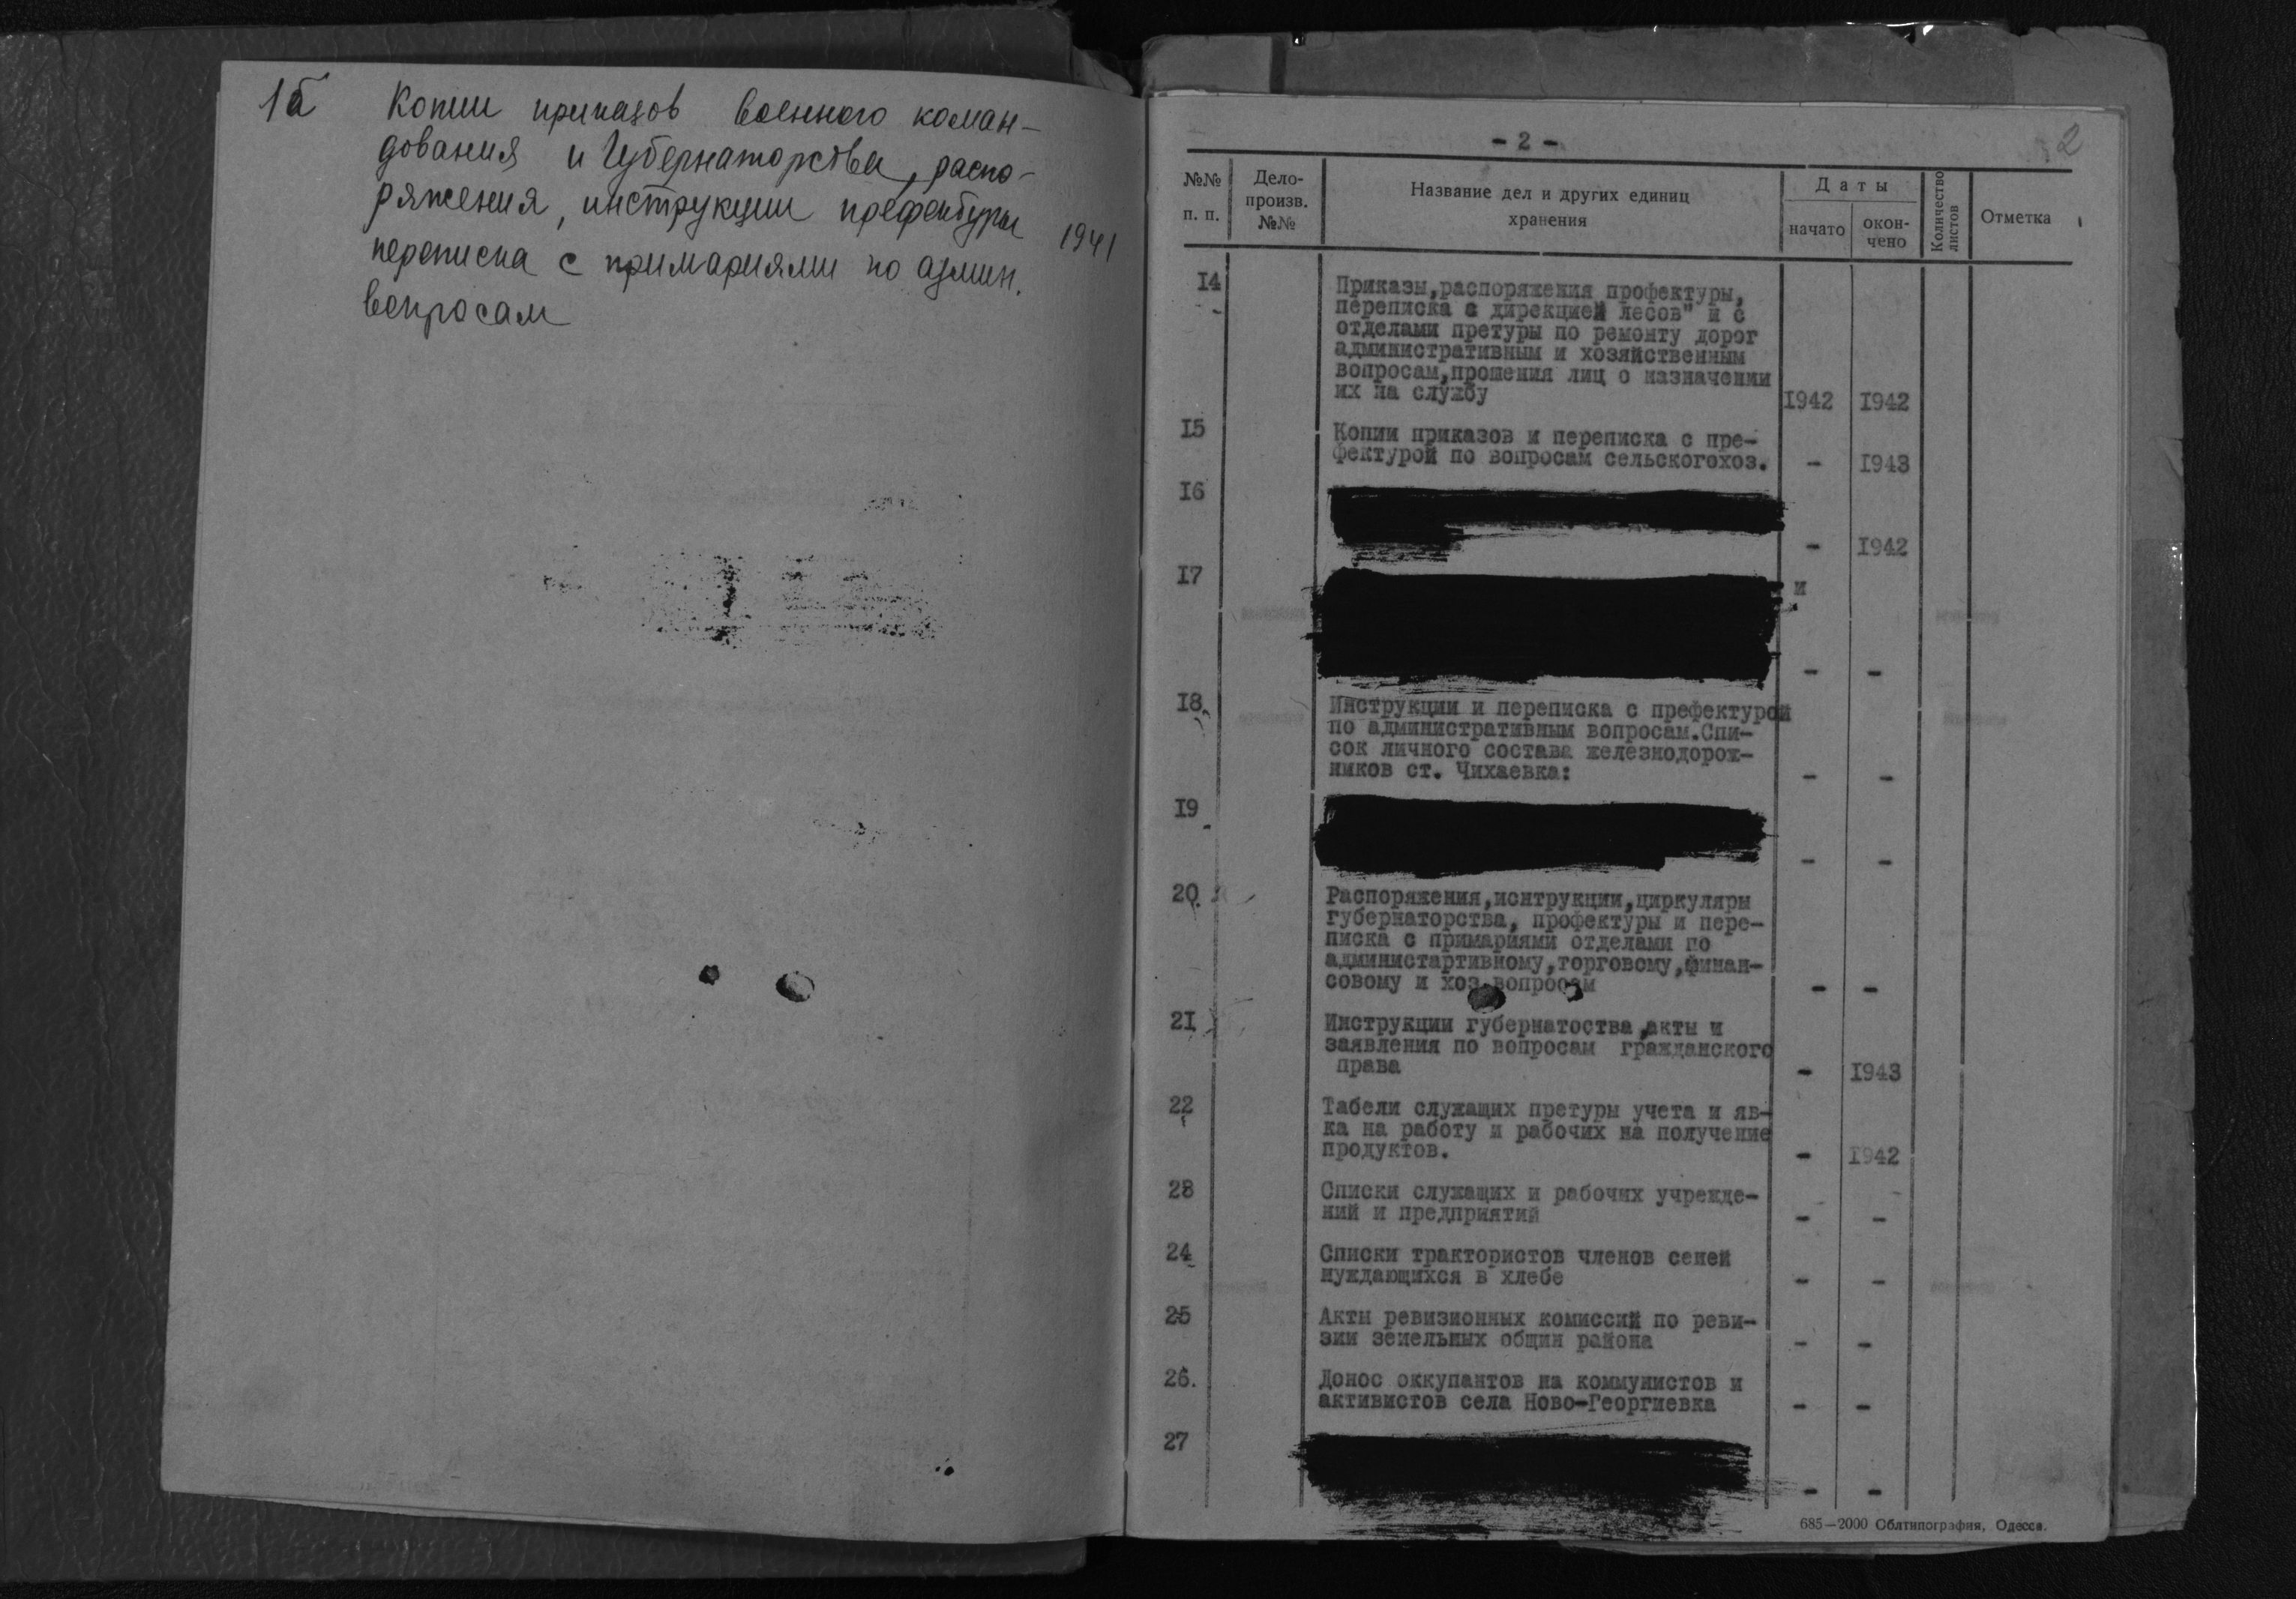 1а Копии приказов военного коман-
дования и Губернаторства, распо-
ряжения, инструкции префектуры
переписка с примариями по админ. 1941
вопросам
- 2 -
2
№№ п. п.
Дело-
произв.
№№
Название дел и других единиц
хранения
Даты
начато
окон-
чено
Количество
листов
Отметка
14 Приказы,распоряжения профектуры,
переписка с дирекцией лесов" и с
отделами претуры по ремонту дорог
административным и хозяйственным
вопросам,прошения лиц о назначении
их на службу 1942 1942
15 Копии приказов и переписка с пре-
фектурой по вопросам сельскогохоз. - 1943
16
- 1942
17 и
- -
18 Инструкции и переписка с префектурой
по административным вопросам.Спи-
сок личного состава железнодорож-
ников ст. Чихаевка: - -
19
- -
20. Распоряжения,иснтрукции,циркуляры
губернаторства, профектуры и пере-
писка с примариями отделами по
администартивному,торговому,финан-
совому и хоз.вопросам - -
21 Инструкции губернатоства,акты и
заявления по вопросам гражданского
права - 1943
22 Табели служащих претуры учета и яв-
ка на работу и рабочих на получение
продуктов. - 1942
23 Списки служащих и рабочих учрежде-
ний и предприятий - -
24 Списки трактористов членов семей
нуждающихся в хлебе - -
25 Акты ревизионных комиссий по реви-
зии земельных общин района - -
26. Донос оккупантов на коммунистов и
активистов села Ново-Георгиевка - -
27
- -
685—2000 Облтипография, Одесса.